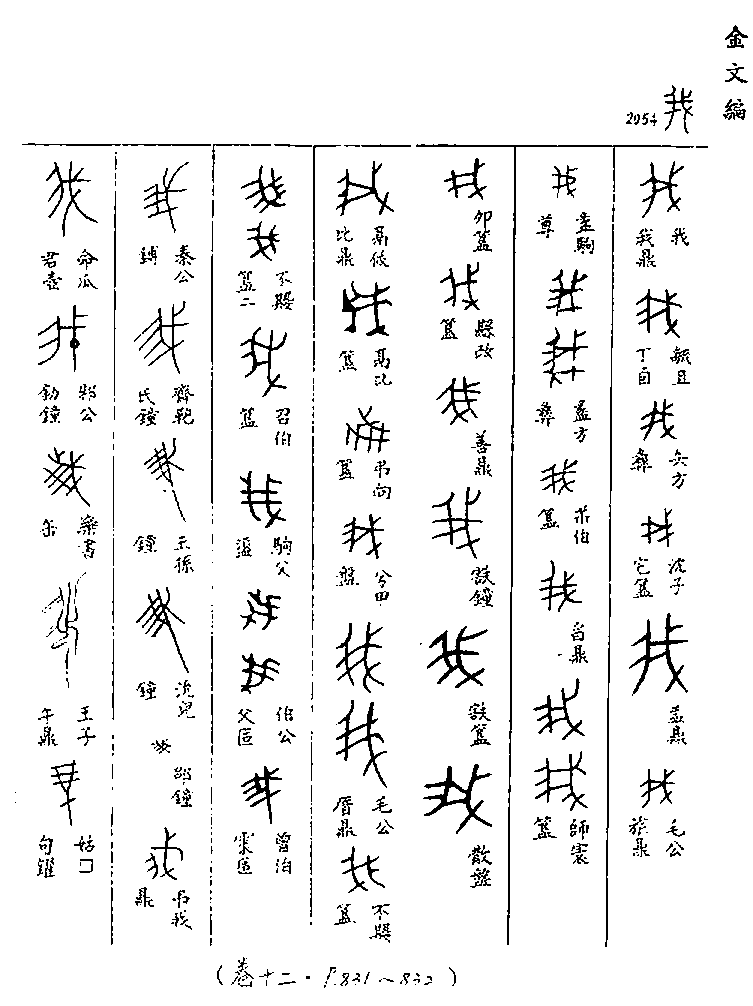 金文編
2054 我
我 我鼎
毓且丁卣
矢方彝
沈子它簋
盂鼎
毛公旅鼎
盠駒尊
盠方彝
召鼎
師㝨簋
卯簋
縣改簋
善鼎
㝬鐘
㝬簋
散盤
鬲攸比鼎
鬲比簋
弔向簋
兮甲盤
毛公厝鼎
不𡢁簋
不𡢁簋二
召伯簋
駒父盨
伯公父𠤳
曾伯霥𠤳
秦公鎛
齊鞄氏鐘
王孫鐘
沇兒鐘
郘鐘
弔我鼎
命瓜君壺
邾公釛鐘
欒書缶
王子午鼎
姑口句鑃
(卷十二·P.831~832)